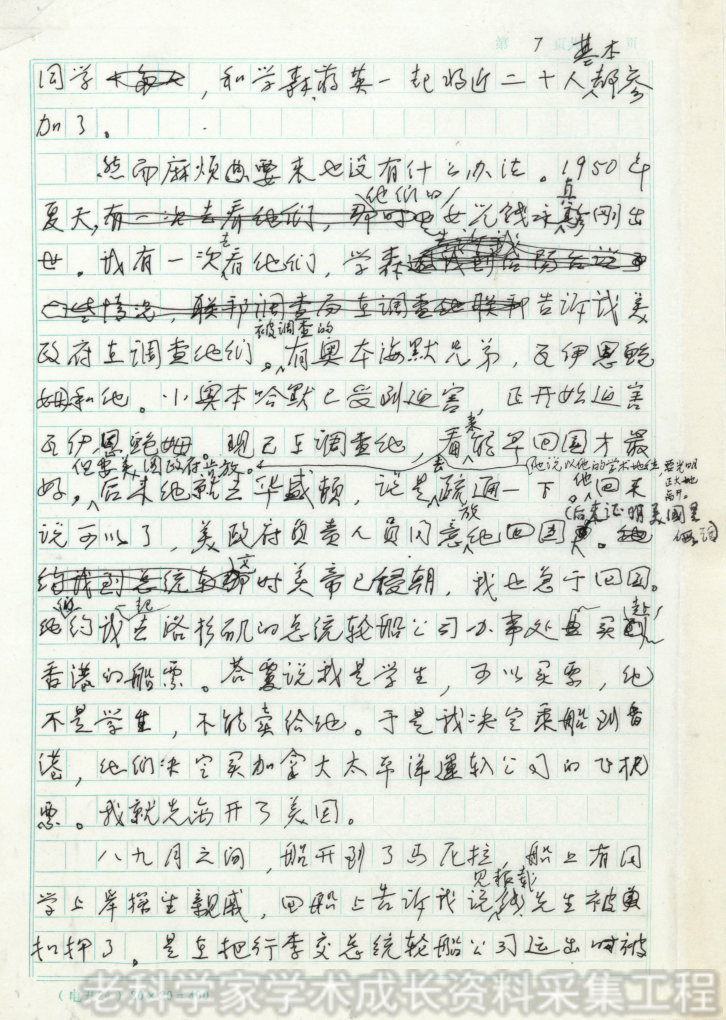 第 7 页 页
基本
同学，和学森蒋英一起将近二十人都参
加了。
然而麻烦要来也没有什么办法。1950年
他们的 真
夏天，女儿钱永刚出
世。我有一次去看他们，学森
告诉我美
被调查的
政府在调查他们。有奥本海默兄弟，瓦伊恩鲍
姆和他。小奥本哈默已受到迫害，正开始迫害
瓦伊恩鲍姆。现已在调查他，看来能早回国才最
但要美国政府肯放。
他说以他的学术地位，要光明正大地离开。
好，后来他就去华盛顿，说是去疏通一下。他回来
(后来证明美国是假话
说可以了，美政府负责人员同意放他回国。
这时美帝已侵朝，我也急于回国。
他约我一起去洛杉矶的总统轮船公司办事处买赴
香港的船票。答复说我是学生，可以买票，他
不是学生，不能卖给他。于是我决定乘船到香
港，他们决定买加拿大太平洋运输公司的飞机
票。我就先离开了美国。
八九月之间，船开到了马尼拉，船上有同
见报载
学上岸探望亲戚，回船上告诉我说钱先生被
扣押了。是在把行李交总统轮船公司运出时被
(电开25) 20×20=400
老科学家学术成长资料采集工程